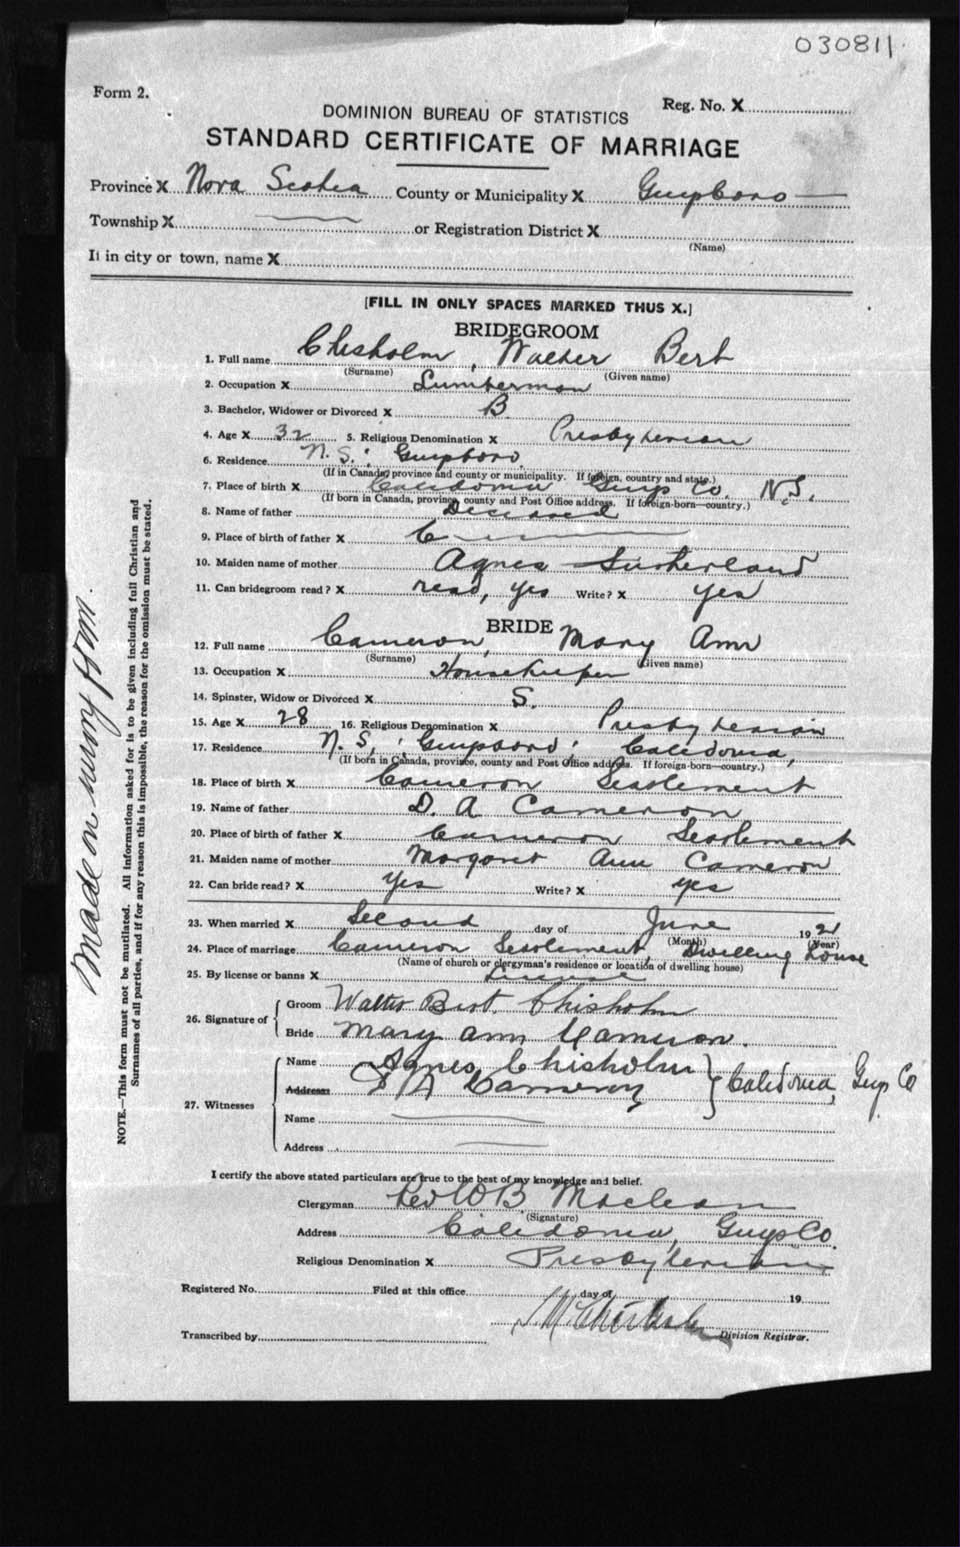 030811
Form 2.
Reg. No. X
DOMINION BUREAU OF STATISTICS
STANDARD CERTIFICATE OF MARRIAGE
Province X Nova Scotia County or Municipality X Guysboro
Township X or Registration District X
(Name)
If in city or town, name X
[FILL IN ONLY SPACES MARKED THUS X.]
BRIDEGROOM
1. Full name Chisholm, Walter Bert
(Surname) (Given name)
2. Occupation X Lumberman
3. Bachelor, Widower or Divorced X B
4. Age X 32 5. Religious Denomination X Presbyterian
6. Residence N.S. Guysboro
(If in Canada, province and county or municipality. If foreign, country and state.)
7. Place of birth X Caledonia Guys Co. N.S.
(If born in Canada, province, county and Post Office address. If foreign-born—country.)
8. Name of father Deceased
9. Place of birth of father X C
10. Maiden name of mother Agnes Sutherland
11. Can bridegroom read? X read, yes Write? X yes
BRIDE
12. Full name Cameron, Mary Ann
(Surname) (Given name)
13. Occupation X Housekeeper
14. Spinster, Widow or Divorced X S.
15. Age X 28 16. Religious Denomination X Presbyterian
17. Residence N.S, Guysboro, Caledonia,
(If born in Canada, province, county and Post Office address. If foreign-born—country.)
18. Place of birth X Cameron Settlement
19. Name of father D. A Cameron
20. Place of birth of father X Cameron Settlement
21. Maiden name of mother Margaret Ann Cameron
22. Can bride read? X Yes Write? X yes
23. When married X Second day of June 192
(Month) (Year)
24. Place of marriage Cameron Settlement, Dwelling House
(Name of church or clergyman's residence or location of dwelling house)
25. By license or banns X License
26. Signature of
Groom Walter Bert. Chisholm
Bride Mary Ann Cameron.
27. Witnesses
Name Agnes Chisholm
Address A Cameron
Caledonia, Guys Co
Name
Address
I certify the above stated particulars are true to the best of my knowledge and belief.
Clergyman Rev W B Maclean
(Signature)
Address Caledonia, Guys Co.
Religious Denomination X Presbyterian
Registered No. Filed at this office day of 19
Chisholm
Division Registrar.
Transcribed by
Made on wrong form.
NOTE.—This form must not be mutilated. All information asked for is to be given including full Christian and
Surnames of all parties, and if for any reason this is impossible, the reason for the omission must be stated.